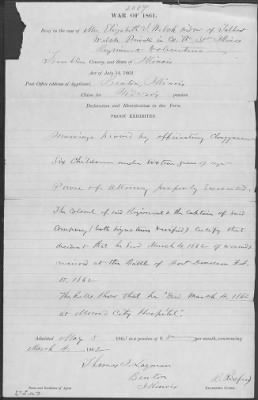 2089
WAR OF 1861.
Brief in the case of Mrs. Elizabeth S. Welch widow of
Welch Private in Co.
Regiment Volunteers
Franklin County, and State of Illinois
Act of July 14, 1862
Post Office address of Applicant: Benton, Illinois
Claim for Widow's pension
Declaration and Identification in due Form.
PROOF EXHIBITED.
Marriage proved by officiating clergyman
Six Children under sixteen years of age
Power of Attorney properly executed.
The Colonel of said Regiment & the Captain of said
Company (both signatures verified) certify that
decedent that he died March 4, 1862 of wounds
received at the Battle of Fort Donelson Feb.
1862
The Rolls show that he "Died March 4, 1862
at Mound City Hospital"
Admitted May 1863 to a pension of $8 per month commencing
March 4, 1862
Thomas J. Layman
Benton
Illinois
Name and Residence of Agent.
Examining Clerk.